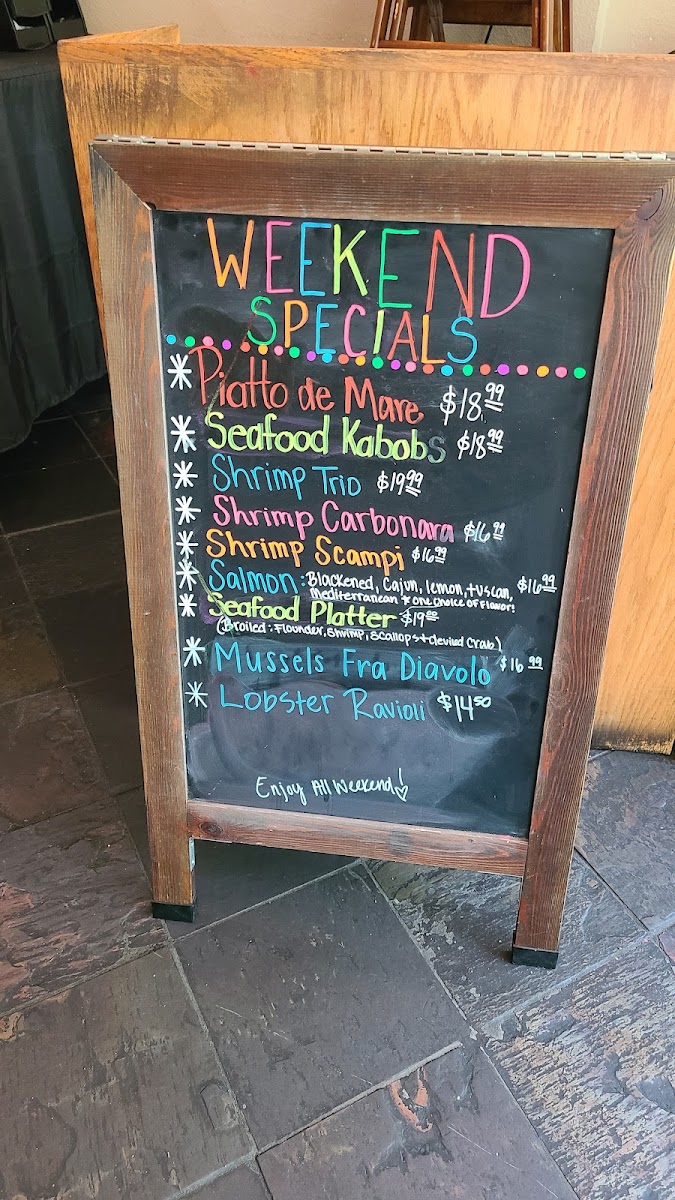 WEEKEND
SPECIALS
* Piatto de Mare $18.99
* Seafood Kabobs $18.99
* Shrimp Trio $19.99
* Shrimp Carbonara $16.99
* Shrimp Scampi $16.99
* Salmon: Blackened, Cajun, lemon, tuscan, $16.99
Mediterranean * one choice of flavor!
* Seafood Platter $19.00
(Broiled: Flounder, Shrimp, Scallops + deviled Crab)
* Mussels Fra Diavolo $16.99
* Lobster Ravioli $14.50
Enjoy All Weekend!